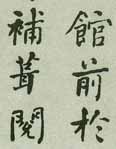 館前於
補葺闕